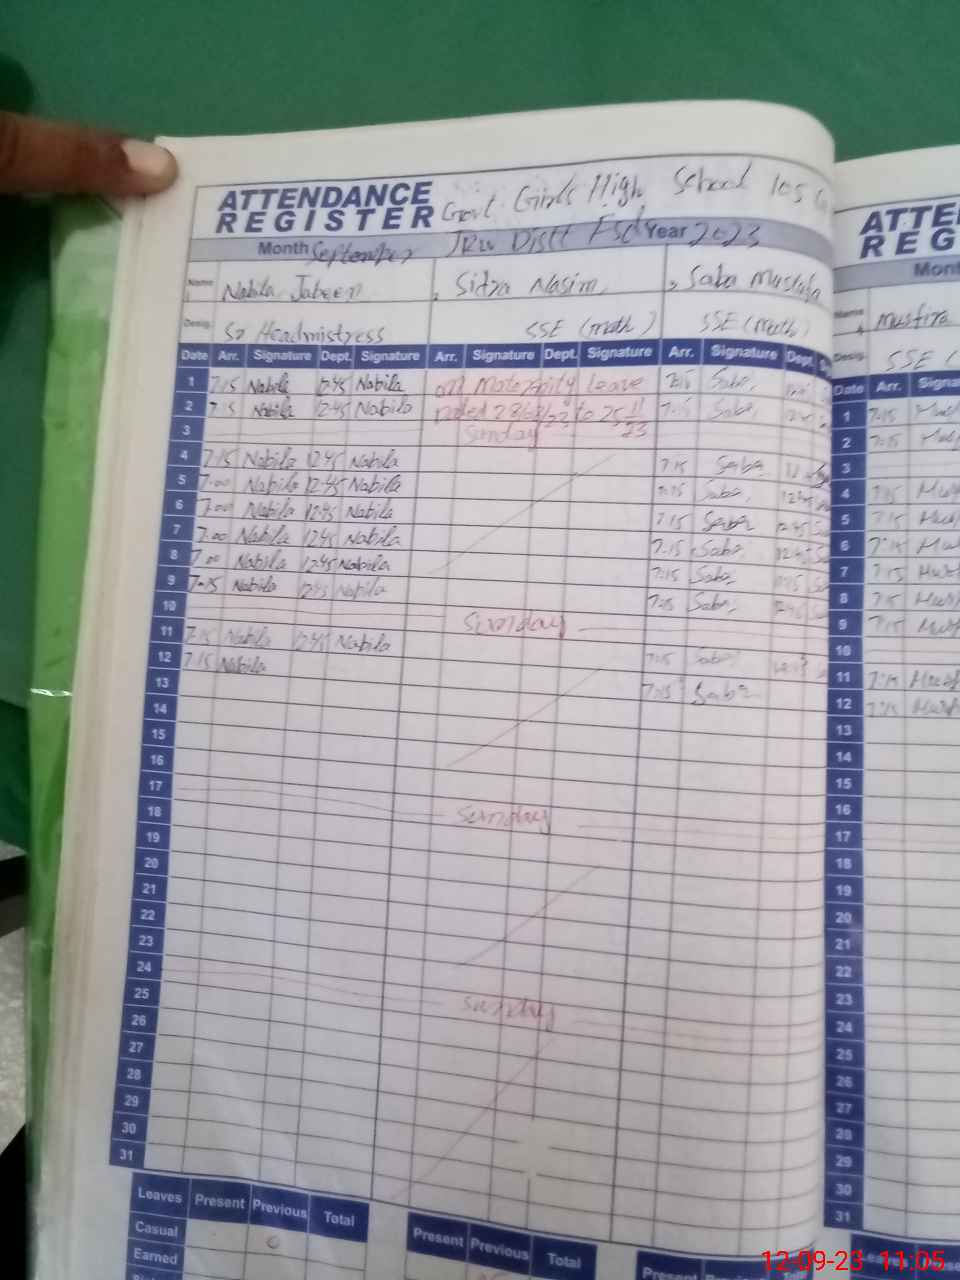 ATTENDANCE Govt Girls High School 105
REGISTER
Month September JRW Distt Fsd Year 2023
Name Nabila Jabeen Sidra Nasim Saba Mustafa
Desig. Sr Headmistress SSE (math) SSE (math)
Date Arr. Signature Dept. Signature Arr. Signature Dept. Signature Arr. Signature Dept.
1 7.15 Nabila 12.45 Nabila on Maternity Leave 7.15 Saba
2 7.15 Nabila 12.45 Nabila to 25 11 23 7.15 Saba
3 Sunday
4 7.15 Nabila 12.45 Nabila 7.15 Saba
5 7.00 Nabila 12.45 Nabila 7.15 Saba 12.45
6 7.00 Nabila 12.45 Nabila 7.15 Saba 12.45
7 7.00 Nabila 12.45 Nabila 7.15 Saba 12.45
8 7.00 Nabila 12.45 Nabila 7.15 Saba
9 7.15 Nabila 12.45 Nabila 7.15 Saba 12.45
10 Sunday
11 7.15 Nabila 12.45 Nabila 7.15 Saba
12 7.15 Nabila 7.15 Saba
13
14
15
16
17 Sunday
18
19
20
21
22
23
24 Sunday
25
26
27
28
29
30
31
Leaves Present Previous Total Present Previous Total Present
Casual 0
Earned
ATTE
REG
Mont
Name
Desig. SSE
Date Arr. Signa
1 7.15
2 7.15
3
4 7.15
5 7.15
6 7.15
7 7.15
8 7.15
9 7.15
10
11 7.15
12 7.15
13
14
15
16
17
18
19
20
21
22
23
24
25
26
27
28
29
30
31
12-09-23 11:05